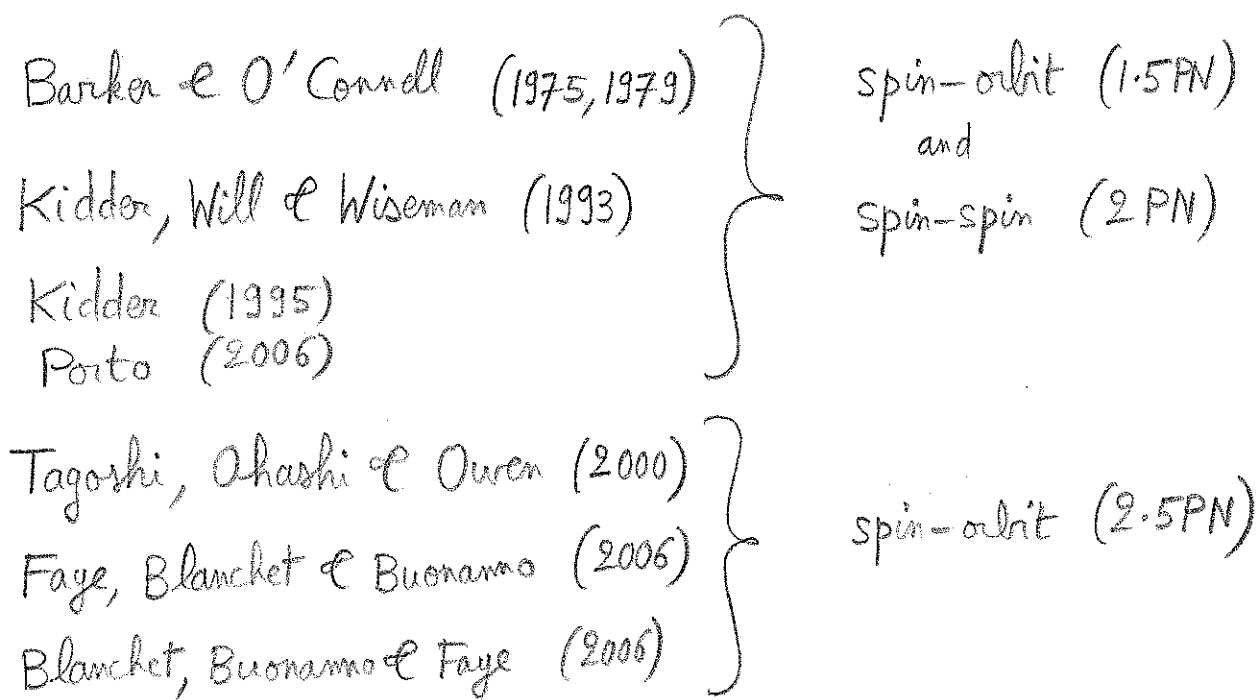 Barker & O'Connell (1975, 1979)
Kidder, Will & Wiseman (1993)
Kidder (1995)
Porto (2006)
spin-orbit (1.5PN)
and
spin-spin (2 PN)
Tagoshi, Ohashi & Owen (2000)
Faye, Blanchet & Buonanno (2006)
Blanchet, Buonanno & Faye (2006)
spin-orbit (2.5PN)